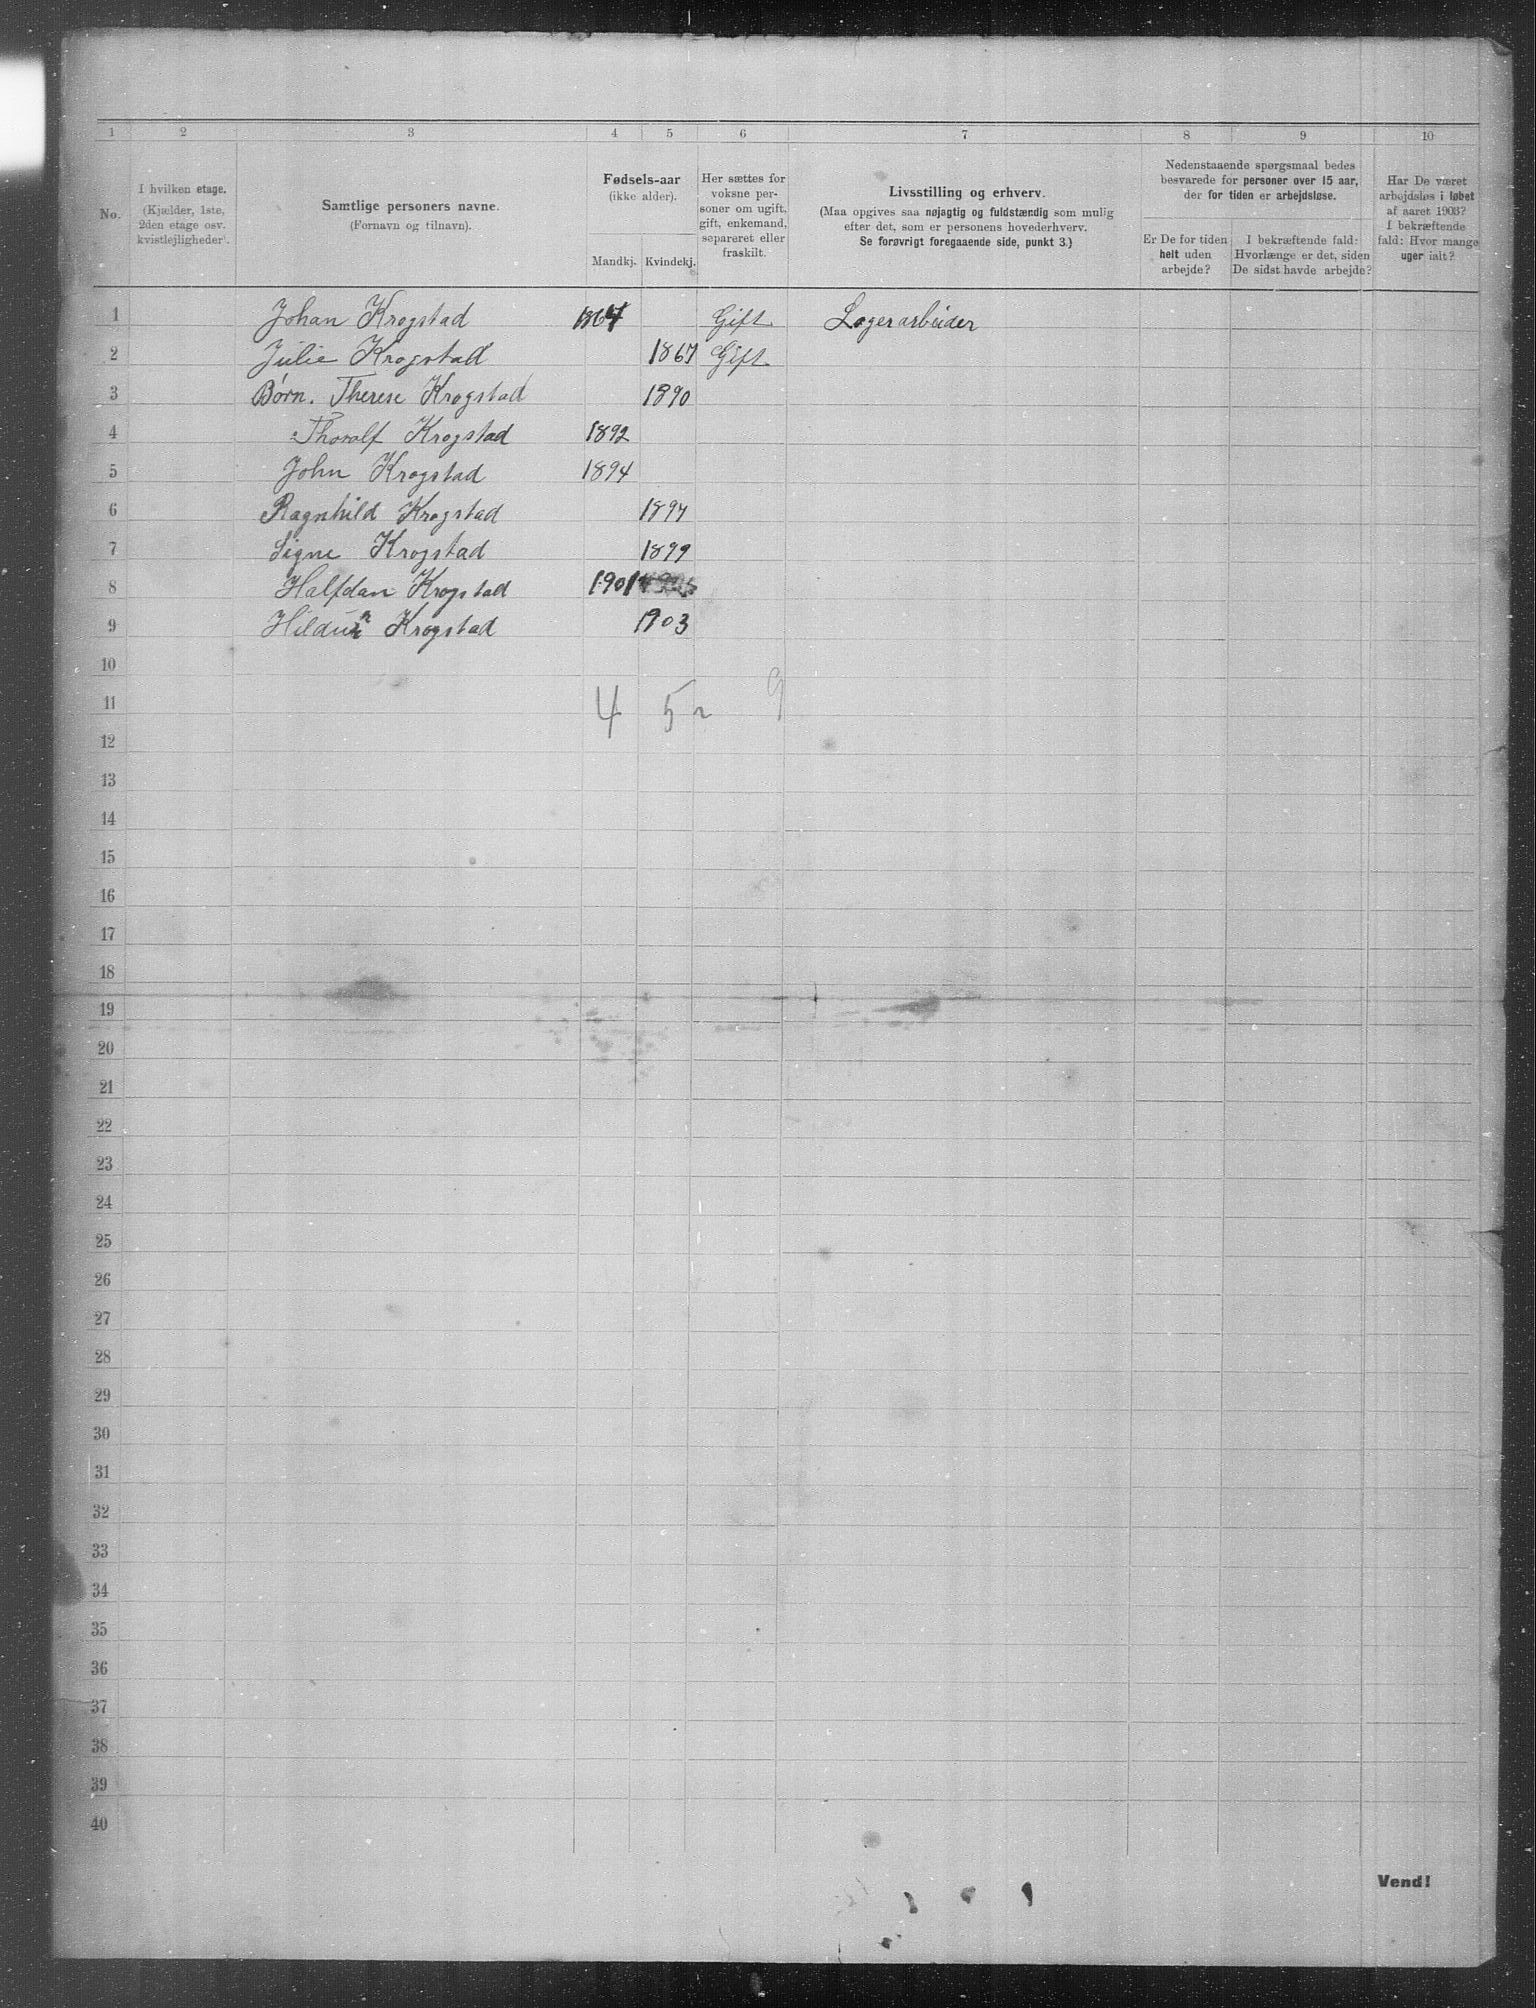 1 2 3 4 5 6 7 8 9 10
No.
I hvilken etage.
(Kjælder, 1ste,
2den etage osv.
kvistlejligheder).
Samtlige personers navne.
(Fornavn og tilnavn).
Fødsels-aar
(ikke alder).
Mandkj. Kvindekj.
Her sættes for
voksne per-
soner om ugift,
gift, enkemand,
separeret eller
fraskilt.
Livsstilling og erhverv.
(Maa opgives saa nøjagtig og fuldstændig som mulig
efter det, som er personens hovederhverv.
Se forøvrigt foregaaende side, punkt 3.)
Nedenstaaende spørgsmaal bedes
besvarede for personer over 15 aar,
der for tiden er arbejdsløse.
Er De for tiden
helt uden
arbejde?
I bekræftende fald:
Hvorlænge er det, siden
De sidst havde arbejde?
Har De været
arbejdsløs i løbet
af aaret 1903?
I bekræftende
fald: Hvor mange
uger ialt?
1 Johan Krogstad 1867 Gift Lagerarbeider
2 Julie Krogstad 1867 Gift
3 Børn. Therese Krogstad 1890
4 Thoralf Krogstad 1892
5 John Krogstad 1894
6 Ragnhild Krogstad 1897
7 Signe Krogstad 1899
8 Halfdan Krogstad 1901
9 Hildur Krogstad 1903
10
11 4 5 9
12
13
14
15
16
17
18
19
20
21
22
23
24
25
26
27
28
29
30
31
32
33
34
35
36
37
38
39
40
Vend!